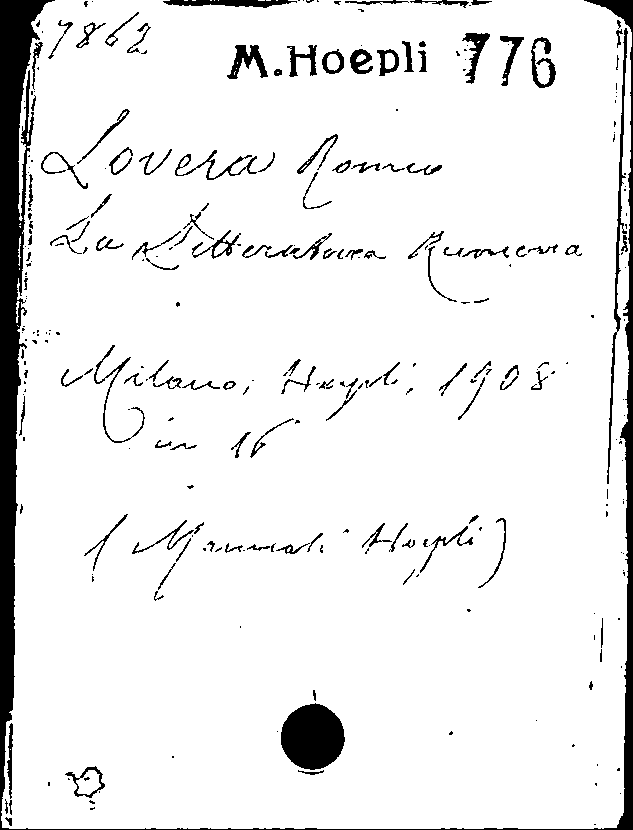 7862
M.Hoepli 776
Lovera Romeo
La Letteratura Rumena
Milano, Hoepli, 1908
in 16
(Manuali Hoepli)